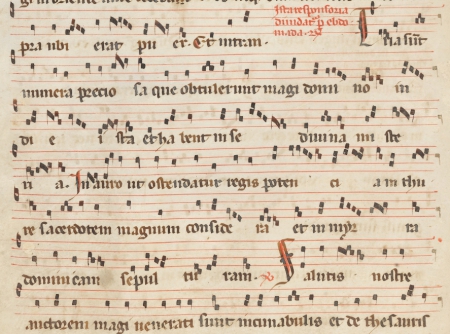 Ista responsoria
dividat p ebdo
mada. R
pra ubi erat pu er. Et intran. Tria sūt
munera precio sa que obtulerunt magi domi no in
di e i sta et ha bent in se divina mi ste
ri a. In auro ut ostendatur regis poten ci a in thu
re sacerdotem magnum conside ra et in myr ra
dominicam sepul tu ram. Salutis nostre
auctorem magi venerati sunt in cunabulis et de thesauris